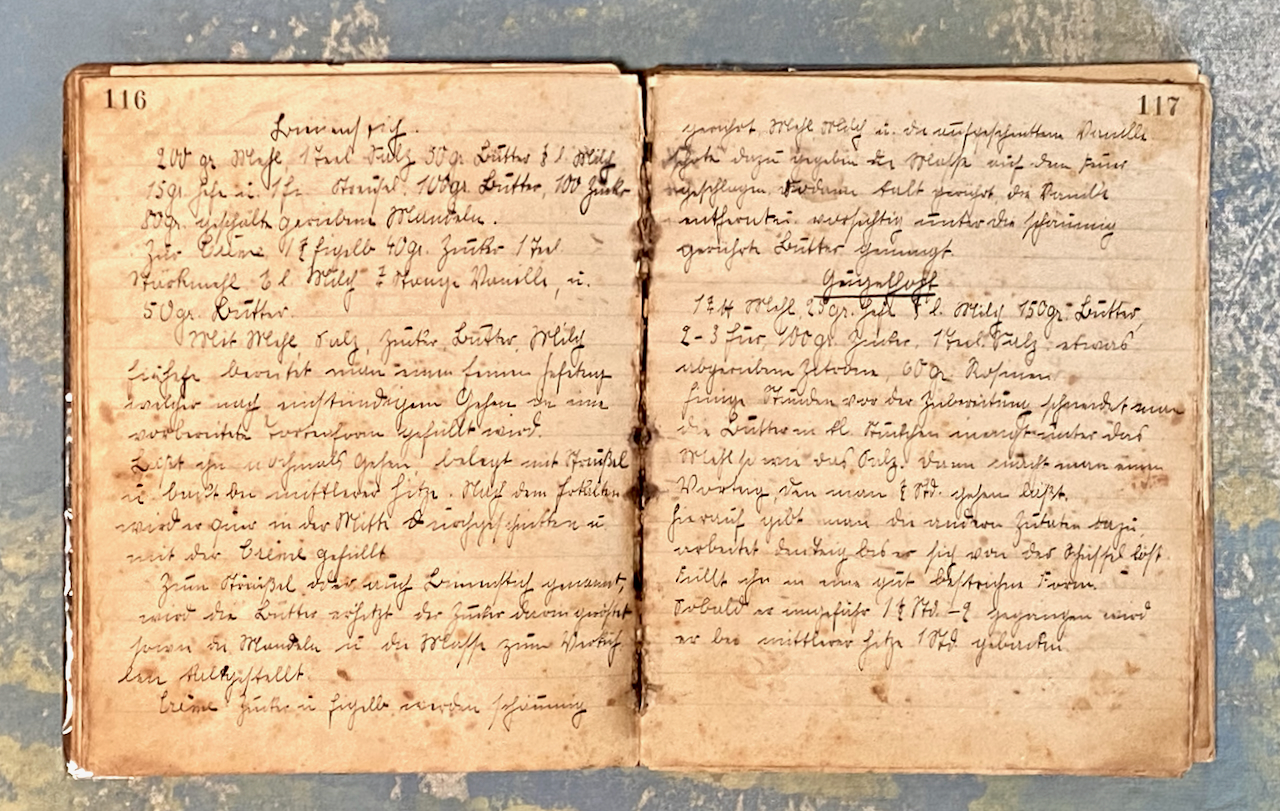 116
Bienenstich.
200 gr. Mehl, 1 Teel. Salz 50 gr. Butter ⅛ l. Milch
15 gr. Hefe u. 1 Ei. Streusel: 100 gr. Butter, 100 Zucker
80 gr. geschält geriebene Mandeln.
Zur Crème 1½ Eigelb 40 gr. Zucker 1 Teel.
Stärkmehl l. Milch Stange Vanille, u.
50 gr. Butter.
Mit Mehl Salz, Zucker Butter, Milch
bereitet man einen feinen Hefeteig
welcher nach einstündigem Gehen in eine
vorbereitete Tortenform gefüllt wird.
Läßt ihn nochmals gehen, belegt mit Streußel
u. backt bei mittlerer Hitze. Nach dem Erkalten
wird er quer in der Mitte durchgeschnitten u.
mit der Crème gefüllt
Zum Streußel oder auch Bienenstich genannt,
wird die Butter erhitzt der Zucker darin geröstet
sowie die Mandeln u. die Masse zum
kaltgestellt.
Crème Zucker u. Eigelb werden schaumig
117
gerührt, Mehl Milch u. die aufgeschnittene Vanille
schote dazu gegeben die Masse auf dem Feuer
geschlagen. Sodann kalt gerührt, die Vanille
entfernt u. vorsichtig unter die schaumig
gerührte Butter gemengt.
Gugelhopf
1½ ℔ Mehl, 25 gr. Hefe l. Milch 150 gr. Butter,
2-3 Eier, 100 gr. Zucker, 1 Teel. Salz, etwas
abgeriebene Zitrone, 60 gr. Rosinen.
Einige Stunden vor der Zubereitung schneidet man
die Butter in kl. Stückchen mengt unter das
Mehl so wie das Salz. Dann macht man einen
Vorteig den man ½ Std. gehen läßt.
Hierauf gibt man die andern Zutaten dazu,
arbeitet den Teig bis er sich von der Schüssel löst
füllt ihn in eine gut bestrichene Form.
Sobald er ungefähr 1½ Std. -2 gegangen wird
er bei mittlerer Hitze 1 Std. gebacken.